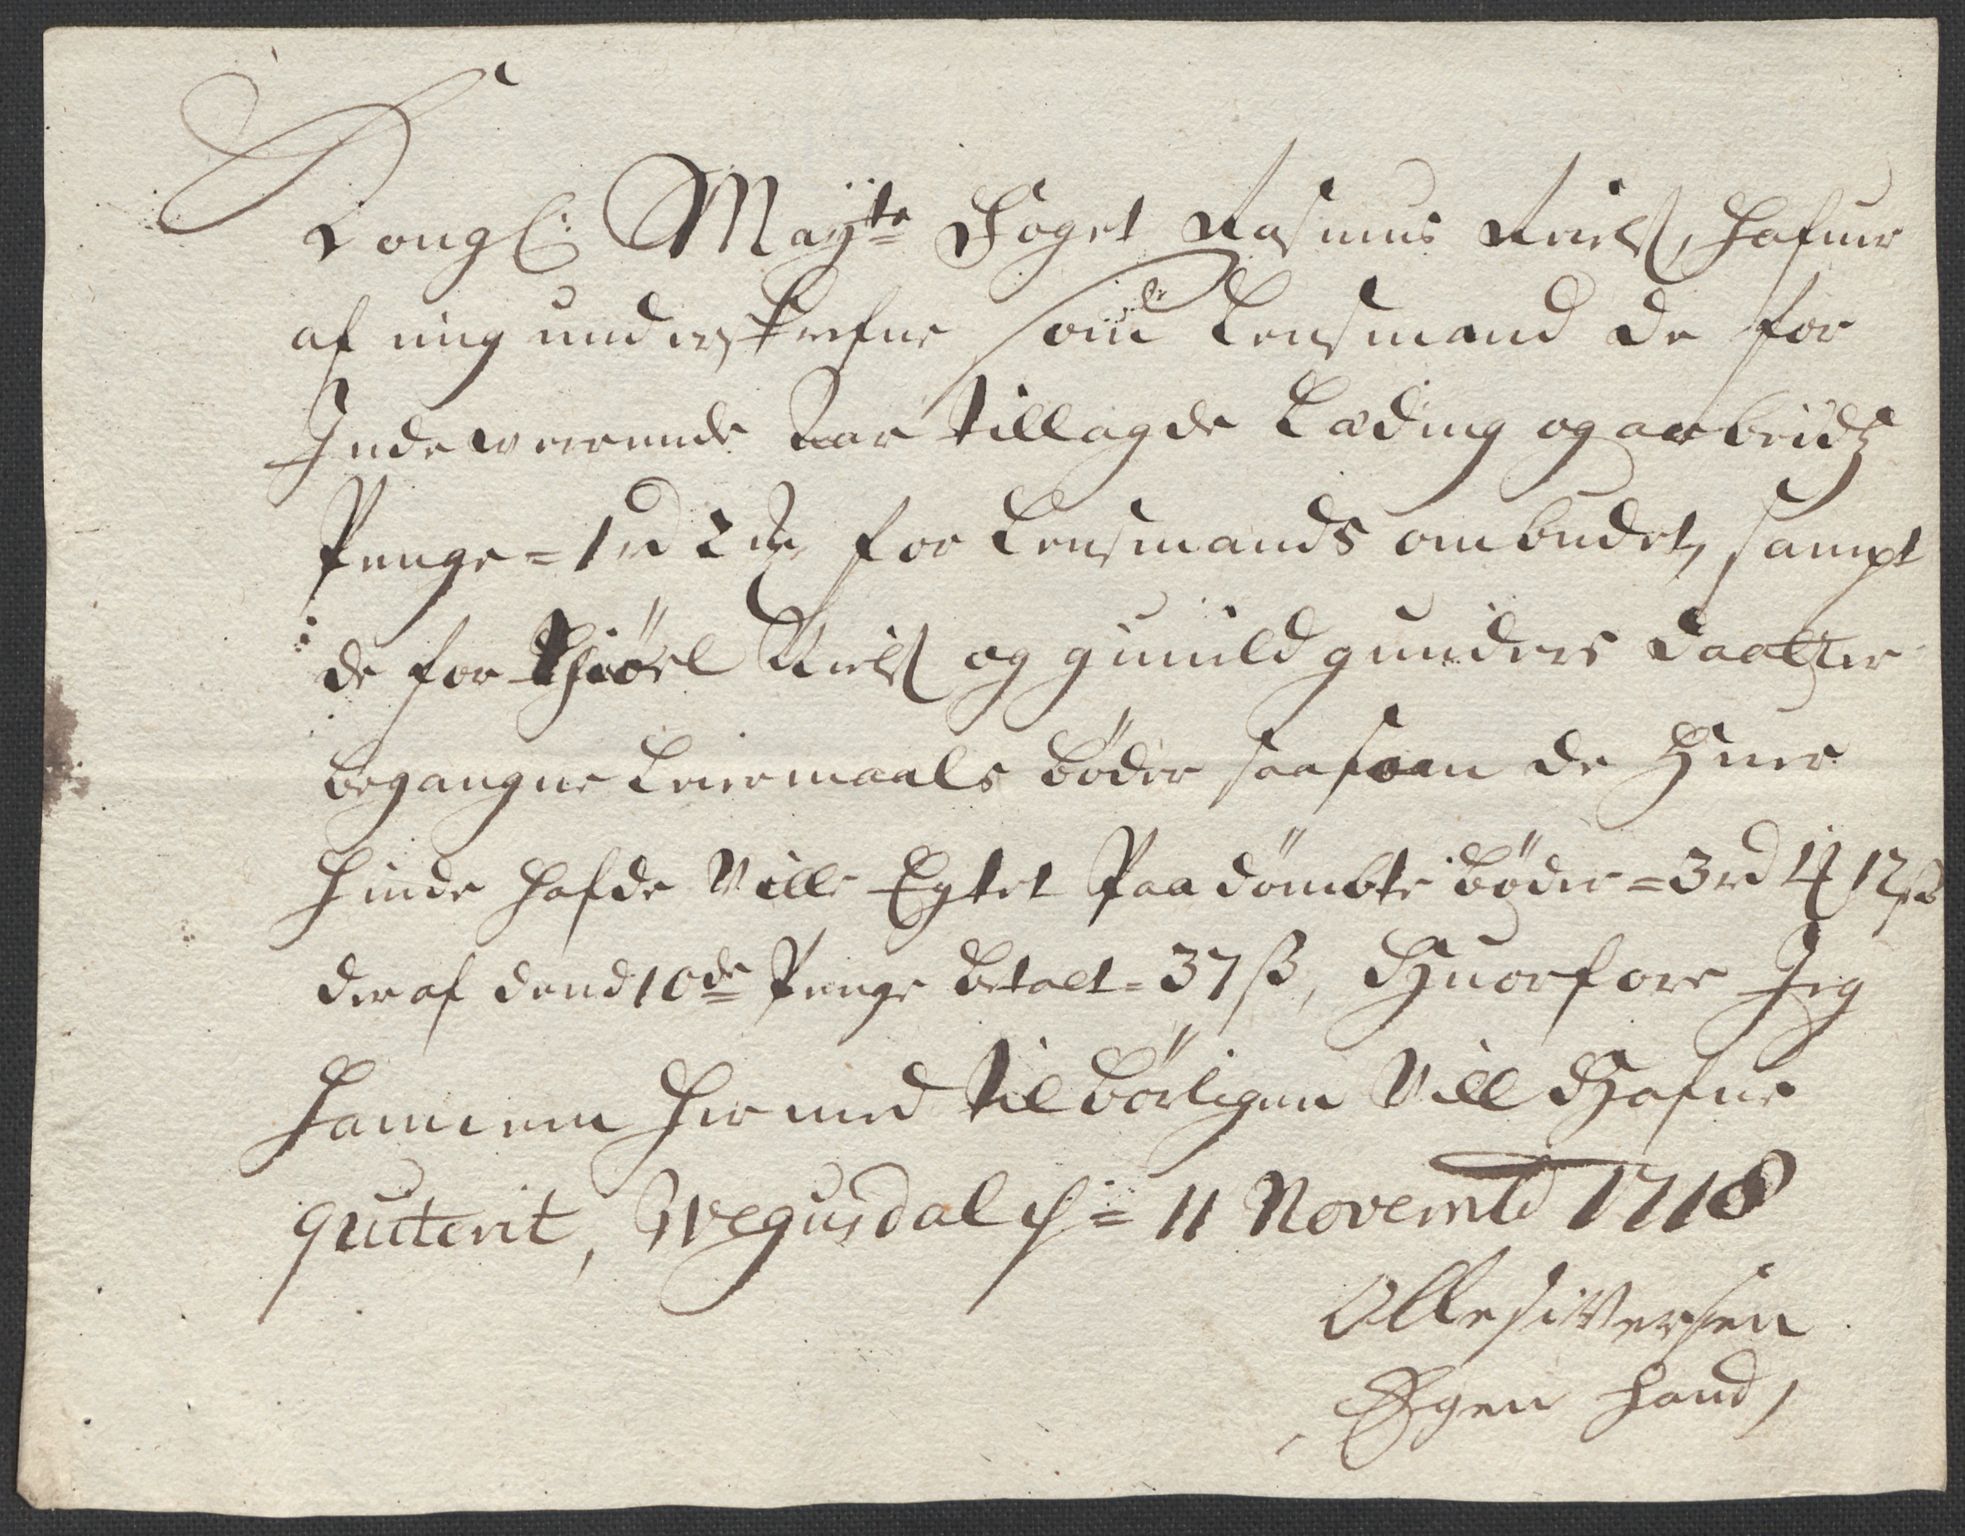 Kongl: Mayts Foget Rasmus Niels, hafuer
af mig underskrefne som Lensmand de for
Indeverende Aar tillagde Leding og arbeids
Penge = 1 rd 2 for Lensmands ombudet, sampt
de for Thiöel Niels og gunild gunders daatter
begangne Leiermaals böder saasom de Huer
hinde hafde Ville Egtet Paa dömbte böder = 3 rd 4 12 ß
deraf dend 10de Penge betalt = 37 ß, Huorfore Jeg
hannem hermed tilbörligen Vill Hafue
quiterit, Wegusdal = 11 Novembr 1718
Olle siversen
Egen Hand